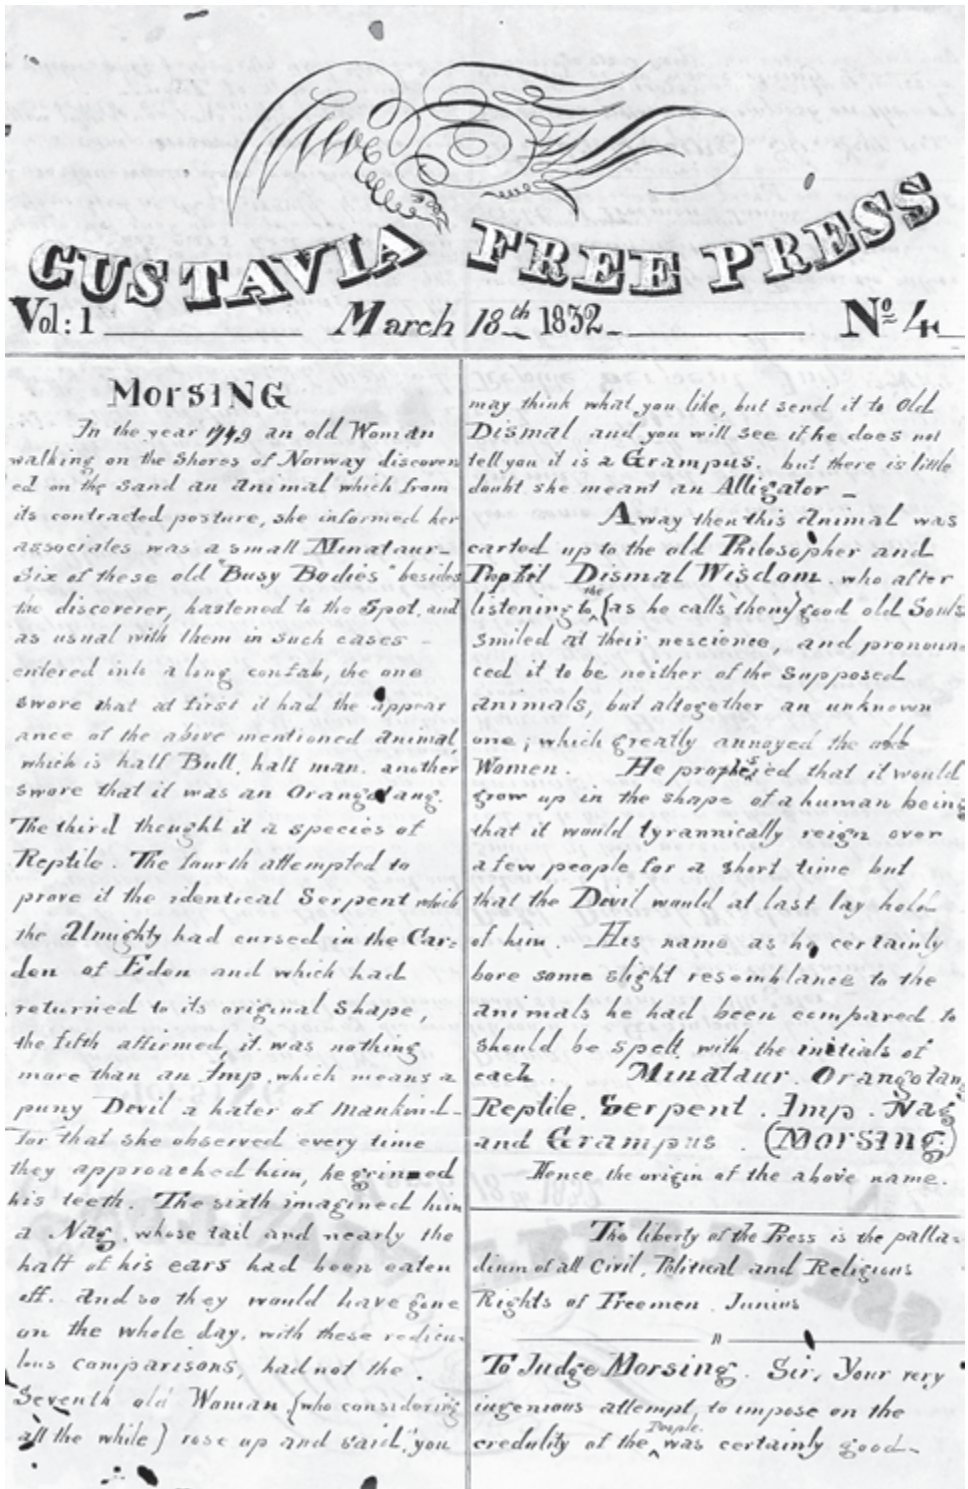 GUSTAVIA FREE PRESS
Vol: 1 March 18th 1832 No 4
MorSING
In the year 1749 an old Woman
walking on the Shores of Norway discover
ed on the Sand an animal which from
its contracted posture, she informed her
associates was a small Minataur-
Six of these old "Busy Bodies" besides
the discoverer, hastened to the Spot, and
as usual with them in such cases -
entered into a long confab, the one
swore that at first it had the appear
ance of the above mentioned animal,
which is half Bull, half man. another
swore that it was an Orangotang.
The third thought it a species of
Reptile. The fourth attempted to
prove it the identical Serpent which
the Almighty had cursed in the Gar=
den of Eden and which had
returned to its original Shape,
the fifth affirmed, it was nothing
more than an Imp, which means a
puny Devil a hater of Mankind-
for that she observed every time
they approached him, he grinned
his teeth. The sixth imagined him
a Nag, whose tail and nearly the
half of his ears had been eaten
off. and so they would have gone
on the whole day, with these redicu-
lous comparisons, had not the
Seventh old Woman (who considering
all the while) rose up and said, "you
may think what you like, but send it to Old
Dismal and you will see if he does not
tell you it is a Grampus. but there is little
doubt she meant an Alligator -
Away then this animal was
carted up to the old Philosopher and
Dismal Wisdom. who after
listening to the (as he calls them) good old Souls
smiled at their nescience, and pronoun
ced it to be neither of the Supposed
animals, but altogether an unknown
one; which greatly annoyed the
Women. He prophesied that it would
grow up in the shape of a human being
that it would tyrannically reign over
a few people for a short time but
that the Devil would at last lay hold
of him. His name as he certainly
bore some slight resemblance to the
animals he had been compared to
should be spelt with the initials of
each. Minataur. Orangotang
Reptile. Serpent. Imp. Nag
and Grampus. (MorSING.)
Hence the origin of the above name.
The liberty of the Press is the palla=
dium of all Civil, Political and Religious
Rights of Freemen. Junius
To Judge Morsing. Sir, Your very
ingenious attempt, to impose on the
credulity of the People was certainly good-